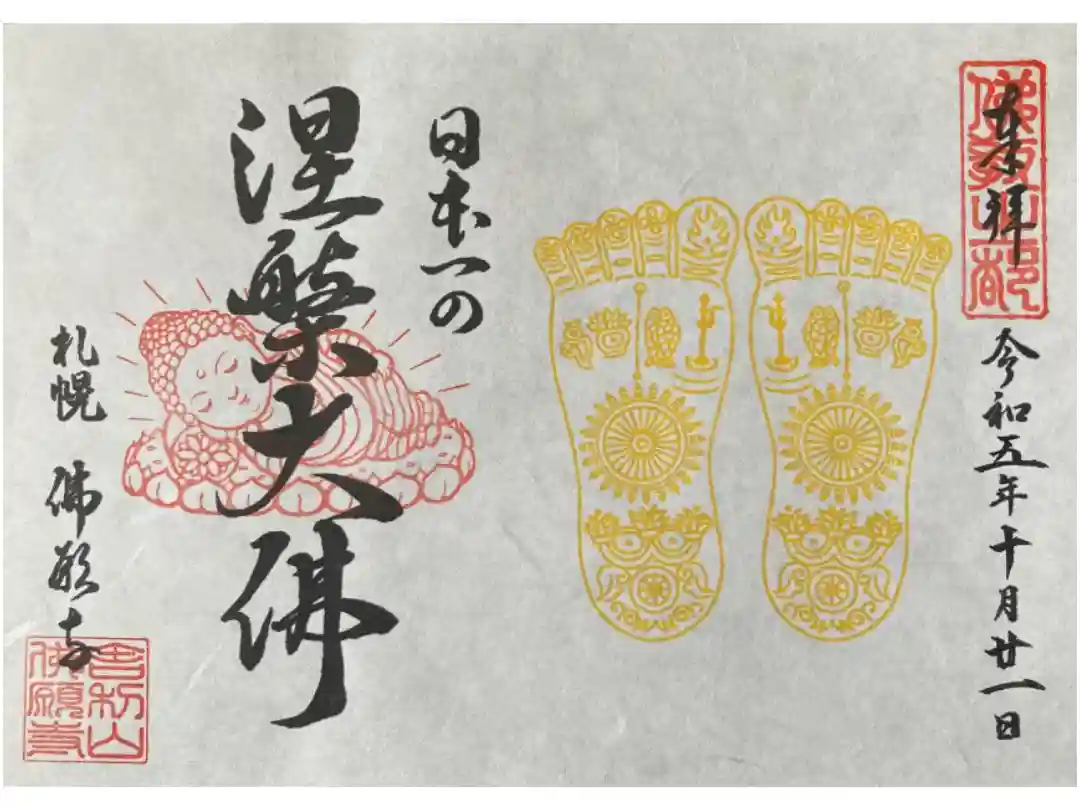 奉拝
佛教之都
令和五年十月廿一日
日本一の
涅槃大佛
札幌 佛願寺
舎利山
佛願寺